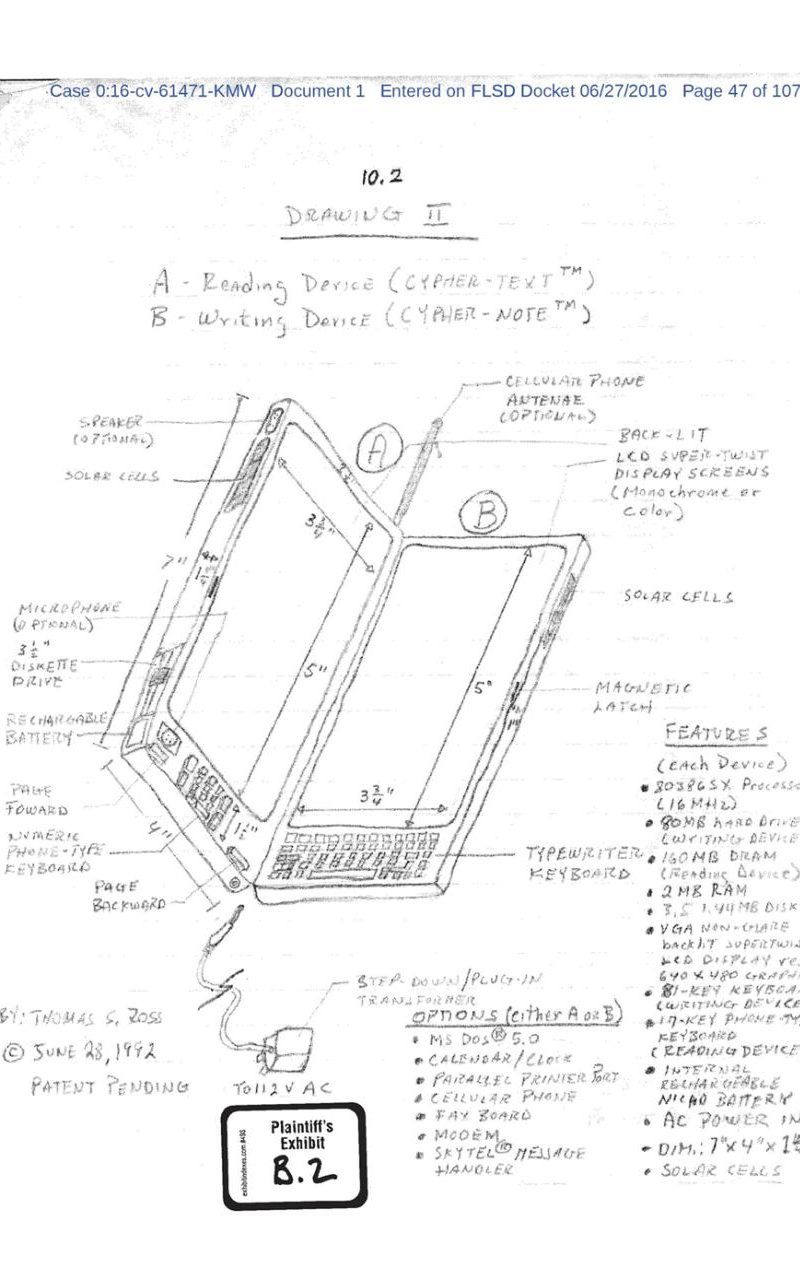 Case 0:16-cv-61471-KMW Document 1 Entered on FLSD Docket 06/27/2016 Page 47 of 107
10.2
DRAWING II
A - Reading Device (CYPHER-TEXT™)
B - Writing Device (CYPHER-NOTE™)
CELLULAR PHONE
ANTENAE
(OPTIONAL)
SPEAKER
(OPTIONAL)
SOLAR CELLS
A
BACK-LIT
LCD SUPER-TWIST
DISPLAY SCREENS
(Monochrome or
Color)
B
3 3/4"
7"
SOLAR CELLS
MICROPHONE
(OPTIONAL)
3 1/2"
DISKETTE
DRIVE
5"
5"
MAGNETIC
LATCH
RECHARGABLE
BATTERY
PAGE
FOWARD
3 3/4"
4"
1 1/2"
NUMERIC
PHONE-TYPE
KEYBOARD
PAGE
BACKWARD
TYPEWRITER
KEYBOARD
FEATURES
(Each Device)
• 80386SX Process
(16 MHz)
• 80MB HARD DRIVE
(WRITING DEVICE
• 160MB DRAM
(Reading Device)
• 2 MB RAM
• 3.5 1.44MB DISK
• VGA NON-GLARE
backlIT SUPERTWI
LCD DISPLAY
640 X 480 GRAPH
• 81-KEY KEYBOA
(WRITING DEVICE
• 17-KEY PHONE-TY
KEYBOARD
(READING DEVICE
• INTERNAL
RECHARGEABLE
NICAD BATTERY
• AC POWER IN
• DIM.: 7"x 4"x
• SOLAR CELLS
STEP-DOWN/PLUG-IN
TRANSFORMER
To 112 V AC
OPTIONS (either A or B)
• MS DOS® 5.0
• CALENDAR/CLOCK
• PARALLEL PRINTER PORT
• CELLULAR PHONE
• FAX BOARD
• MODEM
• SKYTEL® MESSAGE
HANDLER
BY: THOMAS S. ROSS
© JUNE 28, 1992
PATENT PENDING
Plaintiff's
Exhibit
B.2